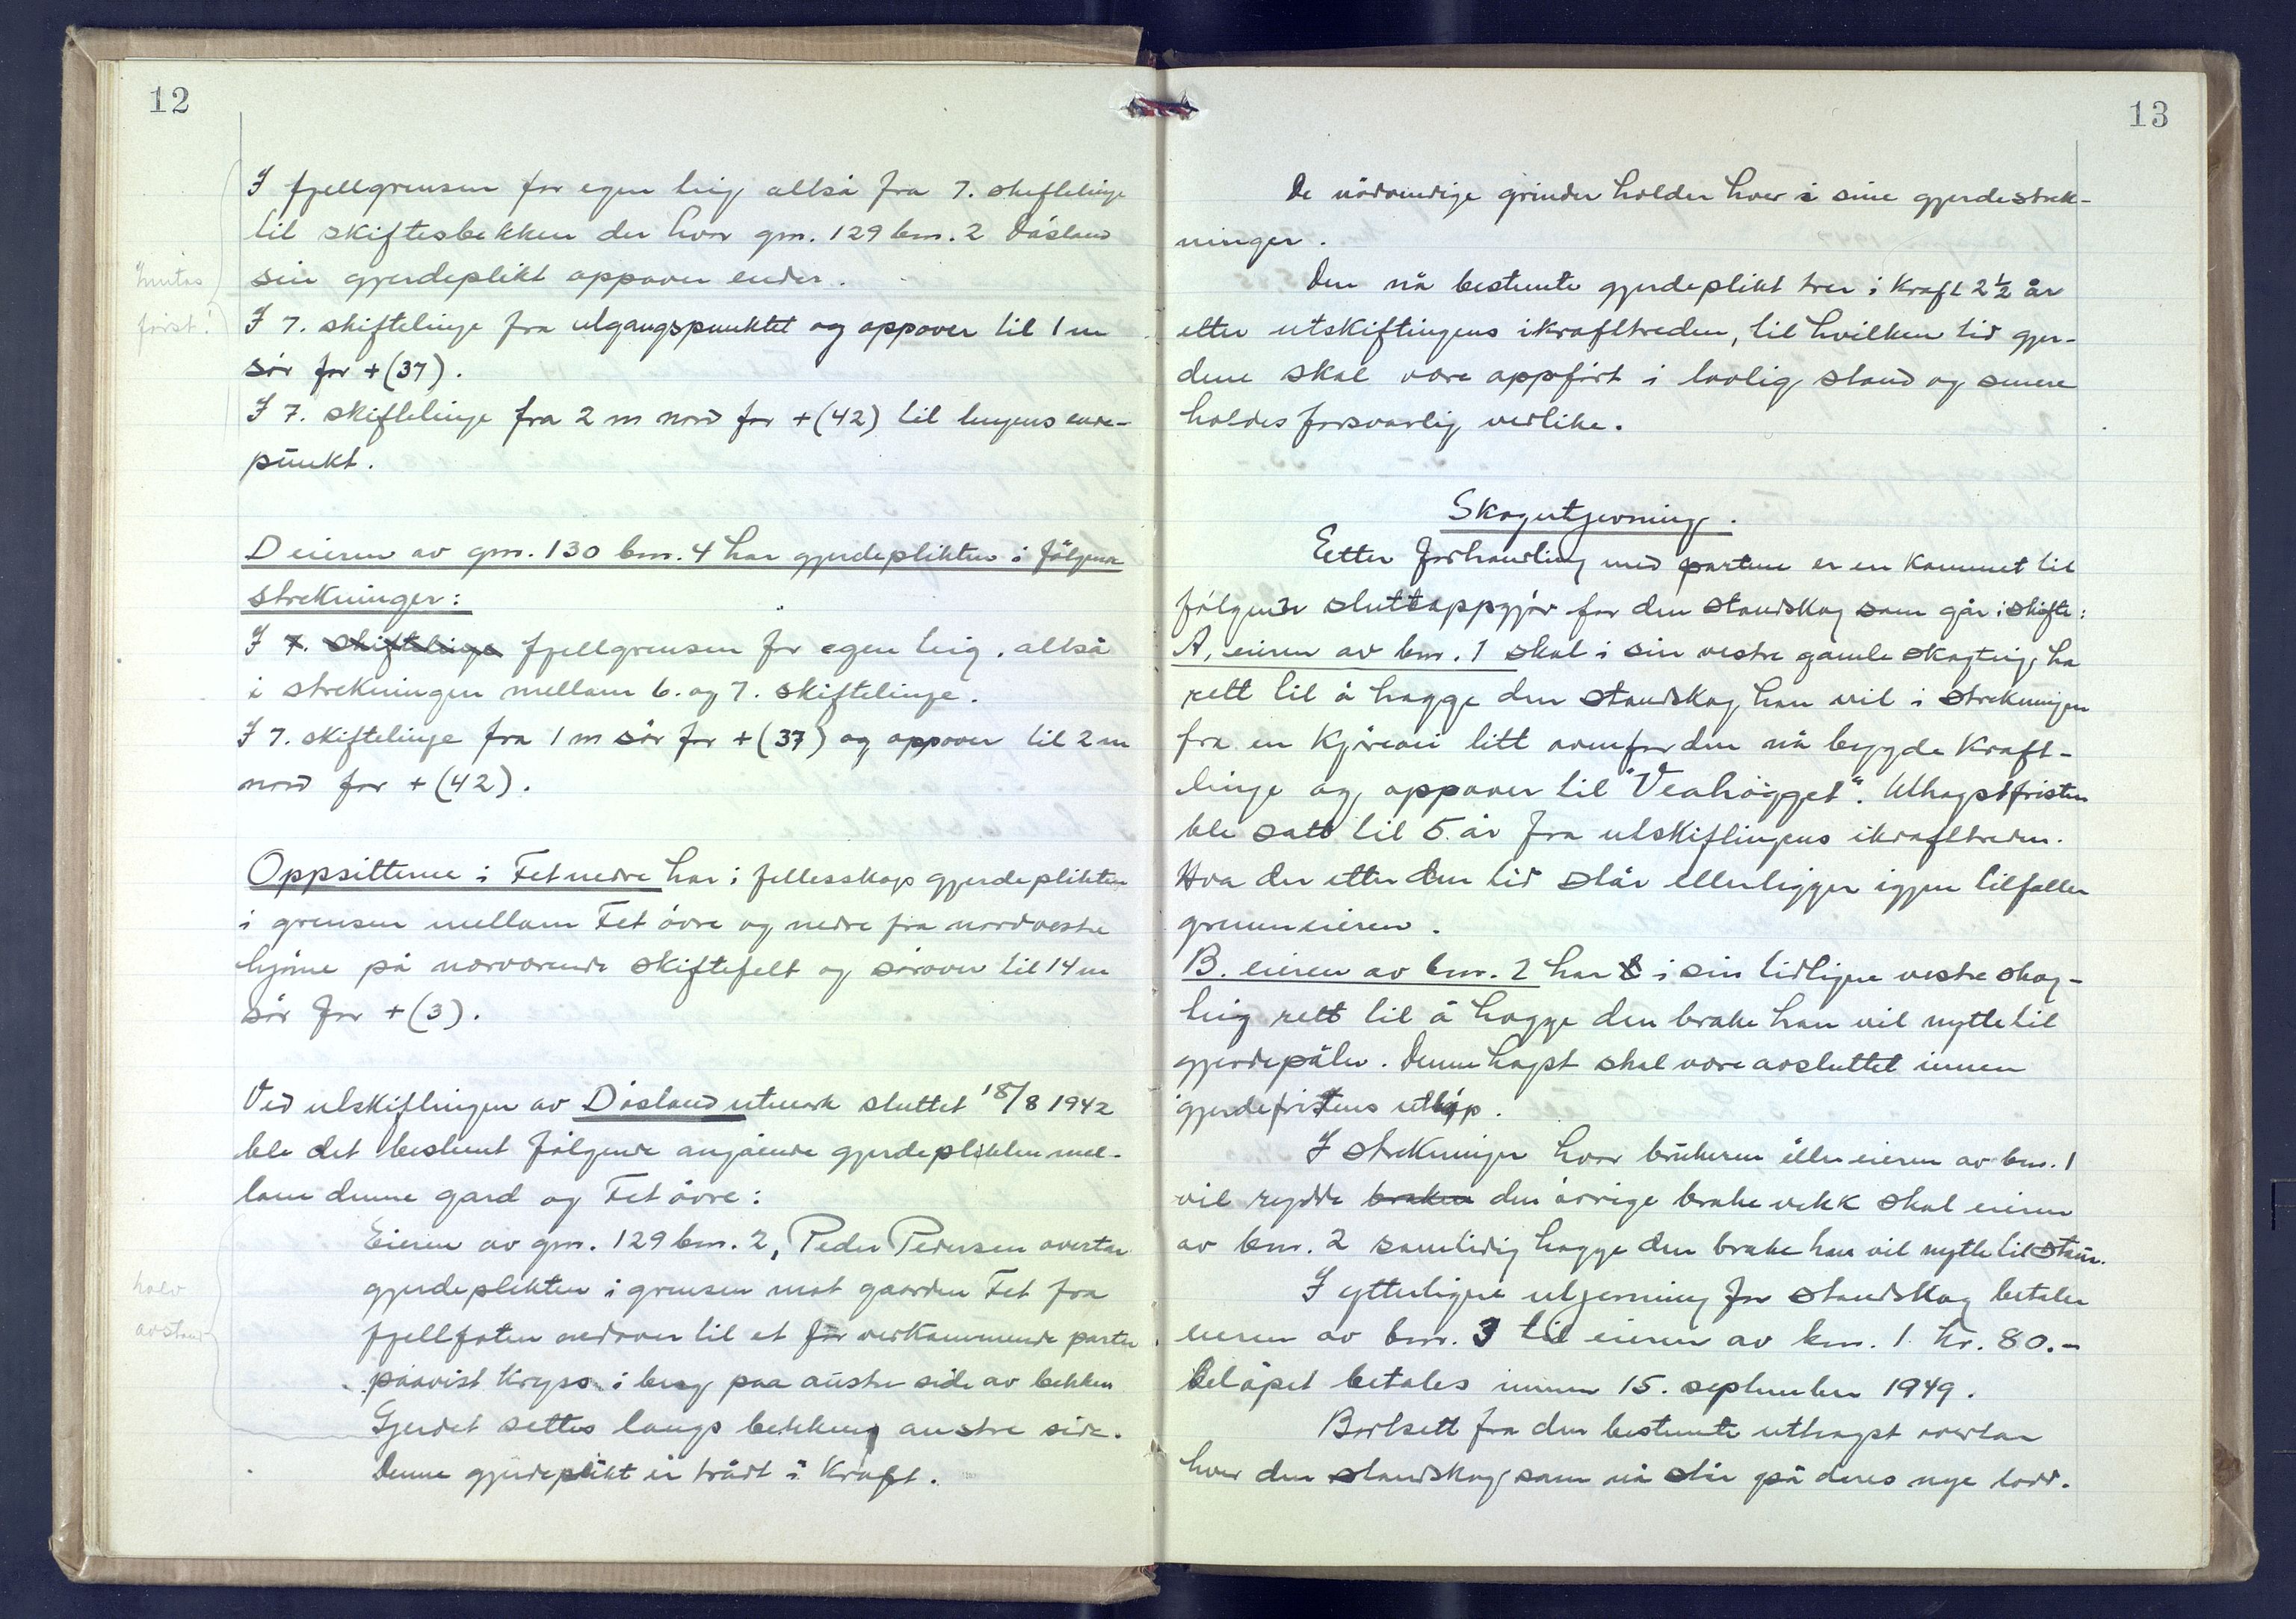 12
I fjellgrensen for egen teig, altså fra 7. skiftelinje
til skiftesbekken der hvor gnr. 129 bnr. 2 Dåsland
sin gjerdeplikt oppover ender.
I 7. skiftelinje fra utgangspunktet og oppover til 1 m
sör for + (37).
I 7. skiftelinje fra 2 m nord for + (42) til linjens ende-
punkt.
først!
D eieren av gnr. 130 bnr. 4 har gjerdeplikten i fölgende
strekninger:
I 7. skiftelinje fjellgrensen for egen teig, altså
i strekningen mellom 6. og 7. skiftelinje.
I 7. skiftelinje fra 1 m sör for + (37) og oppover til 2 m
nord for + (42).
Oppsitterne i Fet nedre har i fellesskap gjerdeplikten
i grensen mellom Fet övre og nedre fra nordvestre
hjörne på nærværende skiftefelt og sörover til 14 m
sör for + (3).
Ved utskiftingen av Dåsland utmark sluttet 18/8 1942
ble det bestemt fölgende angående gjerdeplikten mel-
lom denne gard og Fet övre:
Eieren av gnr. 129 bnr. 2, Peder Pedersen overtar
gjerdeplikten i grensen mot gaarden Fet fra
fjellfoten nedover til et for vedkommende parter
paavist kryss i berg paa austre side av bekken
Gjerdet settes langs bekkens austre side.
Denne gjerdeplikt er trådt i kraft.
halv
avstand
13
De nödvendige grinder holder hver i sine gjerdestrek-
ninger.
Den nå bestemte gjerdeplikt trer i kraft 2½ år
etter utskiftingens ikrafttreden, til hvilken tid gjer-
dene skal være oppfört i lovlig stand og senere
holdes forsvarlig vedlike.
Skogutjevning.
Etter forhandling med partene er en kommet til
fölgende sluttoppgjör for den standskog som går i skifte:
A, eieren av bnr. 1 skal i sin vestre gamle skogteig, ha
rett til å hogge den standskog han vil i strekningen
fra en kjörevei litt ovenfor den nå bygde kraft-
linje og oppover til "Veahögget". Uthogstfristen
ble satt til 5 år fra utskiftingens ikrafttreden.
Hva der etter den tid står eller ligger igjen tilfaller
grunneieren.
B. eieren av bnr. 2 har i sin tidligere vestre skog-
teig rett til å hogge den brake han vil nytte til
gjerdepåler. Denne hogst skal være avsluttet innen
gjerdefristens utløp.
I strekninger hvor brukeren eller eieren av bnr. 1
vil rydde braken den övrige brake vekk skal eieren
av bnr. 2 samtidig hogge den brake han vil nytte til staur.
I ytterligere utjevning for standskog betaler
eieren av bnr. 3 til eieren av bnr. 1 kr. 80.-
Belöpet betales innen 15. september 1949.
Bortsett fra den bestemte uthogst overtar
hver den standskog, som nå står på deres nye lodd.